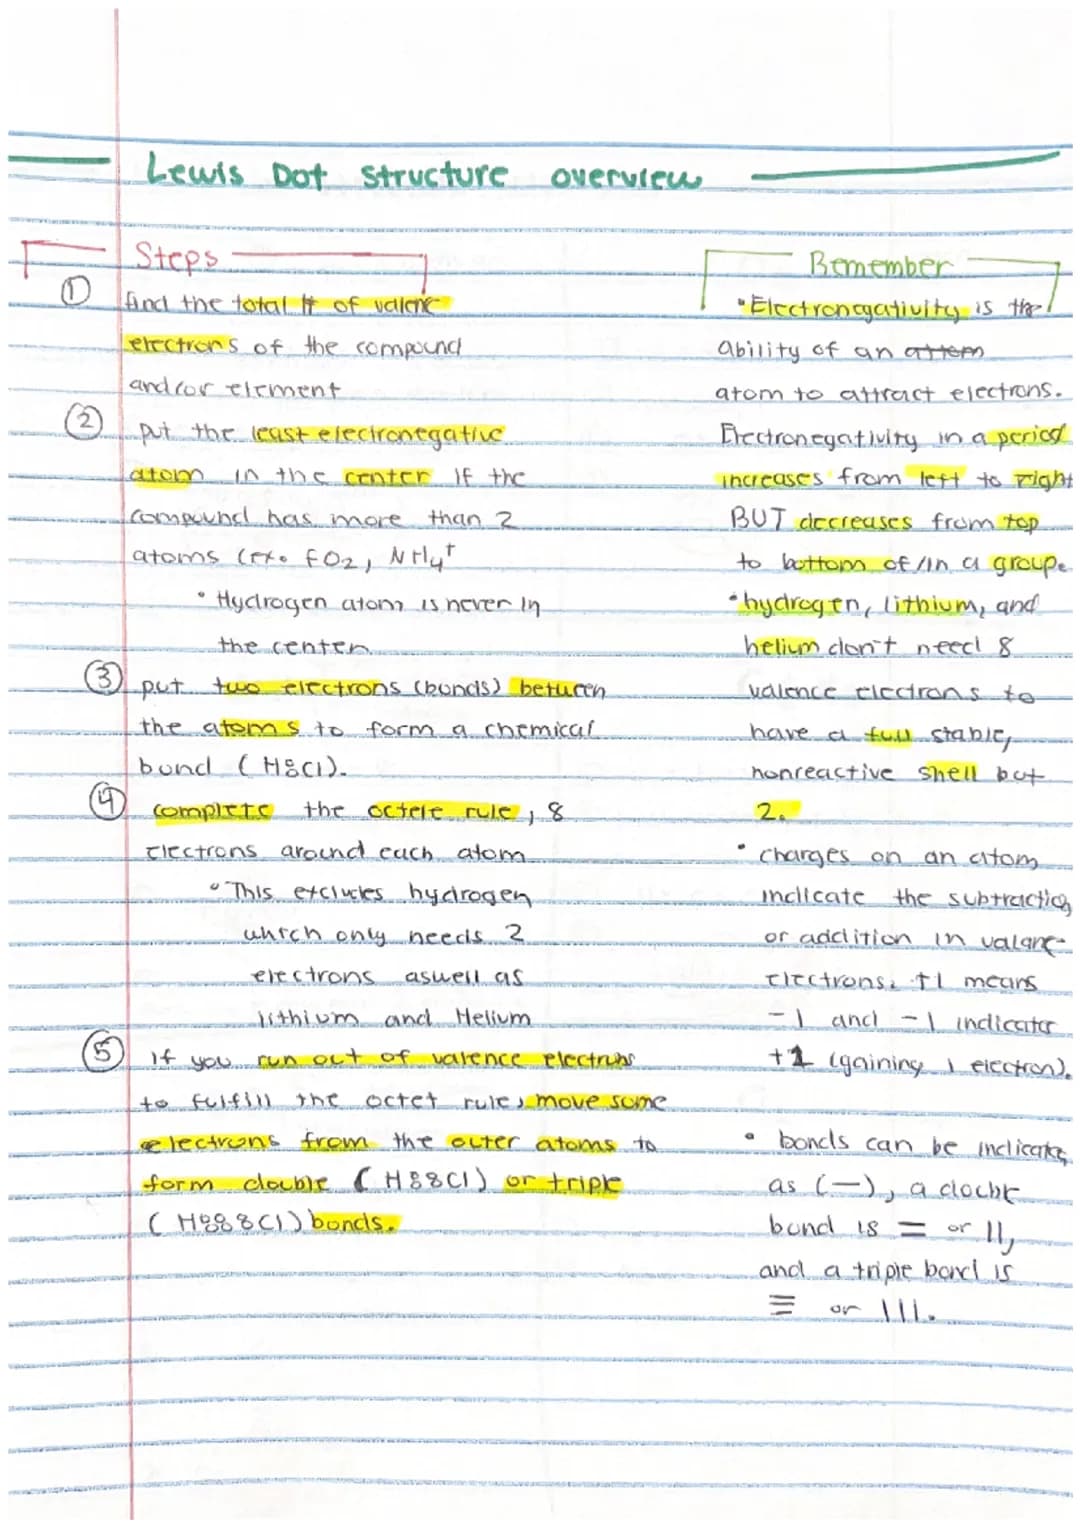 Lewis Dot structure overview
Steps
① find the total # of valenc
electrons of the compound
and/or element
② put the least electronegative
atom in the center if the
compound has more than 2
atoms (ex. fO2, NH4+
• Hydrogen atom is never in
the center
③ put two electrons (bonds) between
the atoms to form a chemical
bond (H:Cl).
④ complete the octete rule, 8
electrons around each atom
• This excludes hydrogen
which only needs 2
electrons aswell as
lithium and Helium
⑤ If you run out of valence electrons
to fulfill the octet rule, move some
electrons from the outer atoms to
form double (H::Cl) or triple
(H:::Cl) bonds.
Remember
• Electronegativity is the
ability of an attem
atom to attract electrons.
Electronegativity in a period
increases from left to right
BUT decreases from top
to bottom of/in a group.
• hydrogen, lithium, and
helium don't need 8
valence electrons to
have a full stable,
nonreactive shell but
2.
• charges on an atom
indicate the subtraction
or addition in valanc-
electrons. +1 means
-1 and -1 indicate
+1 (gaining 1 electron).
• bonds can be indicate
as (—), a double
bond is = or ||,
and a triple bond is
≡ or |||.